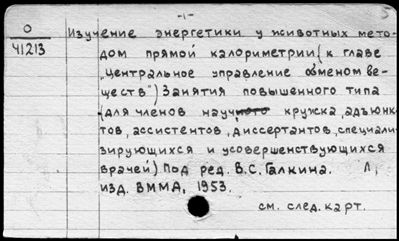 -1-
5
О
41213
Изучение энергетики у животных мето-
дом прямой калориметрии (к главе
„Центральное управление обменом ве-
ществ") Занятия повышенного типа
(для членов научного кружка, адъюнк-
тов, ассистентов, диссертантов, специали-
зирующихся и усовершенствующихся
врачей) Под ред. В.С. Галкина. Л,
изд. ВММА, 1953.
см. след. карт.